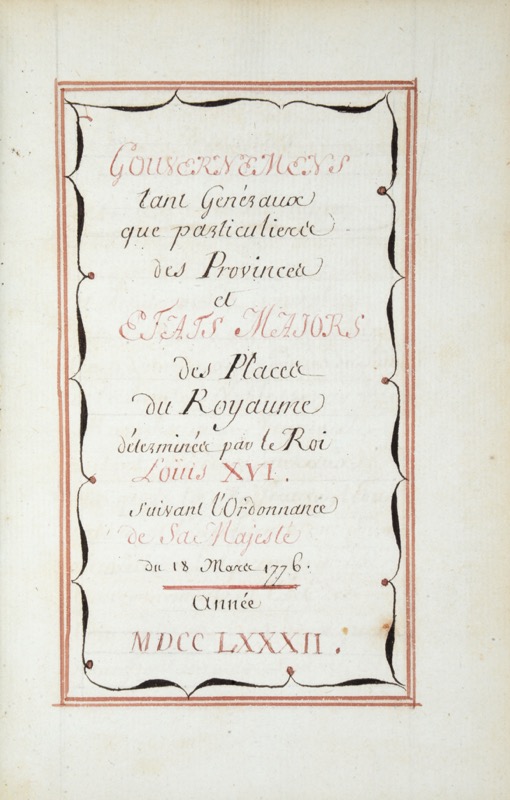 GOUVERNEMENS
tant Genéraux
que particulieres
des Provinces
et
ETATS MAJORS
des Places
du Royaume
déterminés par le Roi
Loüis XVI.
suivant l'Ordonnance
de Sa Majesté
du 18 Mars 1776.
Année
MDCC LXXXII.